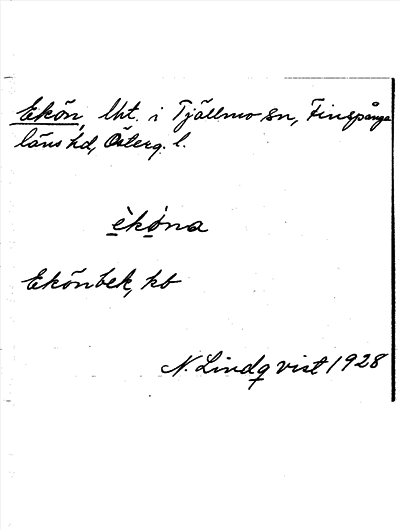 Ekön, lht. i Tjällmo sn, Finspånga
läns hd, Österg. l.
èkòna
Ekönbek, kb
N. Lindqvist 1928